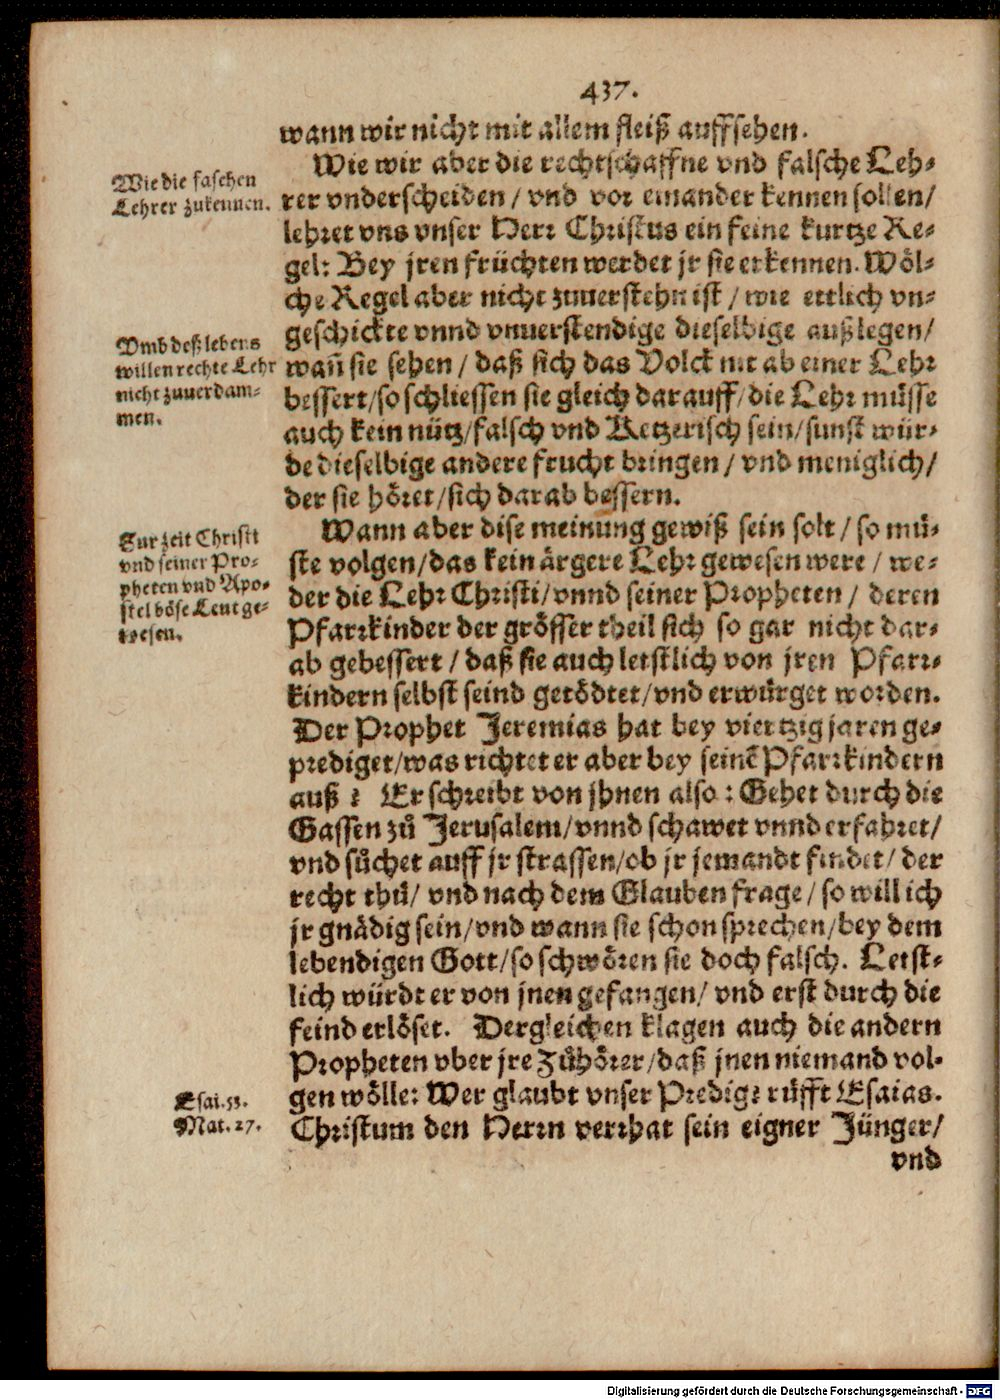 437.
wann wir nicht mit allem fleiß auffsehen.
Wie wir aber die rechtschaffne vnd falsche Leh-
Wie die faschen
Lehrer zukennen.
rer vnderscheiden / vnd vor einander kennen sollen/
lehret vns vnser Herr Christus ein feine kurtze Re-
gel: Bey jren früchten werdet jr sie erkennen. Wöl-
che Regel aber nicht zuuerstehn ist / wie ettlich vn-
geschickte vnnd vnuerstendige dieselbige außlegen/
Vmb deß lebens
willen rechte Lehr
nicht zuuerdam-
men.
wañ sie sehen / daß sich das Volck nit ab einer Lehr
bessert/so schliessen sie gleich darauff/die Lehr müsse
auch kein nütz/falsch vnd Ketzerisch sein/sunst wür-
de dieselbige andere frucht bringen / vnd meniglich/
der sie höret/sich darab bessern.
Wann aber dise meinung gewiß sein solt / so mü-
Zur zeit Christi
vnd seiner Pro-
pheten vnd Apo-
stel böse Leut ge-
wesen.
ste volgen/das kein ärgere Lehr gewesen were / we-
der die Lehr Christi/vnnd seiner Propheten / deren
Pfarrkinder der grösser theil sich so gar nicht dar-
ab gebessert / daß sie auch letstlich von jren Pfarr-
kindern selbst seind getödtet/vnd erwürget worden.
Der Prophet Jeremias hat bey viertzig jaren ge-
prediget/was richtet er aber bey seinẽ Pfarrkindern
auß? Er schreibt von jhnen also: Gehet durch die
Gassen zů Jerusalem/vnnd schawet vnnd erfahret/
vnd sůchet auff jr strassen/ob jr jemandt findet/ der
recht thů/ vnd nach dem Glauben frage / so will ich
jr gnädig sein/vnd wann sie schon sprechen/bey dem
lebendigen Gott/so schwören sie doch falsch. Letst-
lich würdt er von jnen gefangen/ vnd erst durch die
feind erlöset. Dergleichen klagen auch die andern
Propheten vber jre Zůhörer/daß jnen niemand vol-
gen wölle: Wer glaubt vnser Predig? rüfft Esaias.
Esai.53.
Mat.27.
Christum den Herrn verrhat sein eigner Jünger/
vnd
Digitalisierung gefördert durch die Deutsche Forschungsgemeinschaft - DFG